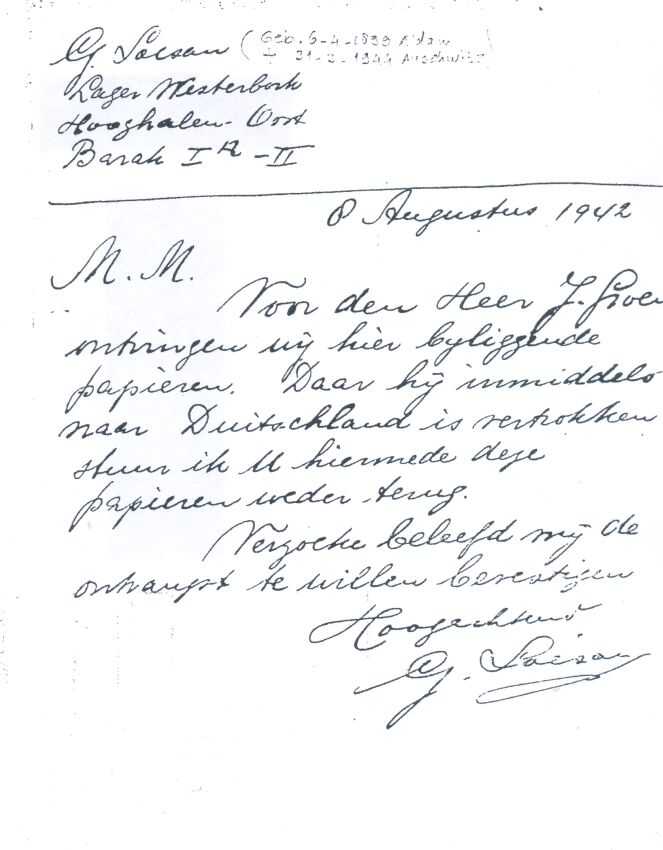 G. Loesan (Geb. 6-4-1899 A'dam
† 31-3-1944 Auschwitz)
Lager Westerbork
Hooghalen-Oost
Barak I R - II
8 Augustus 1942
M. M.
Voor den Heer J. Groen
ontvingen wij hier byliggende
papieren. Daar hij inmiddels
naar Duitschland is vertrokken
stuur ik U hiermede deze
papieren weder terug.
Verzoeke beleefd mij de
ontvangst te willen bevestigen
Hoogachtend
G. Loesan